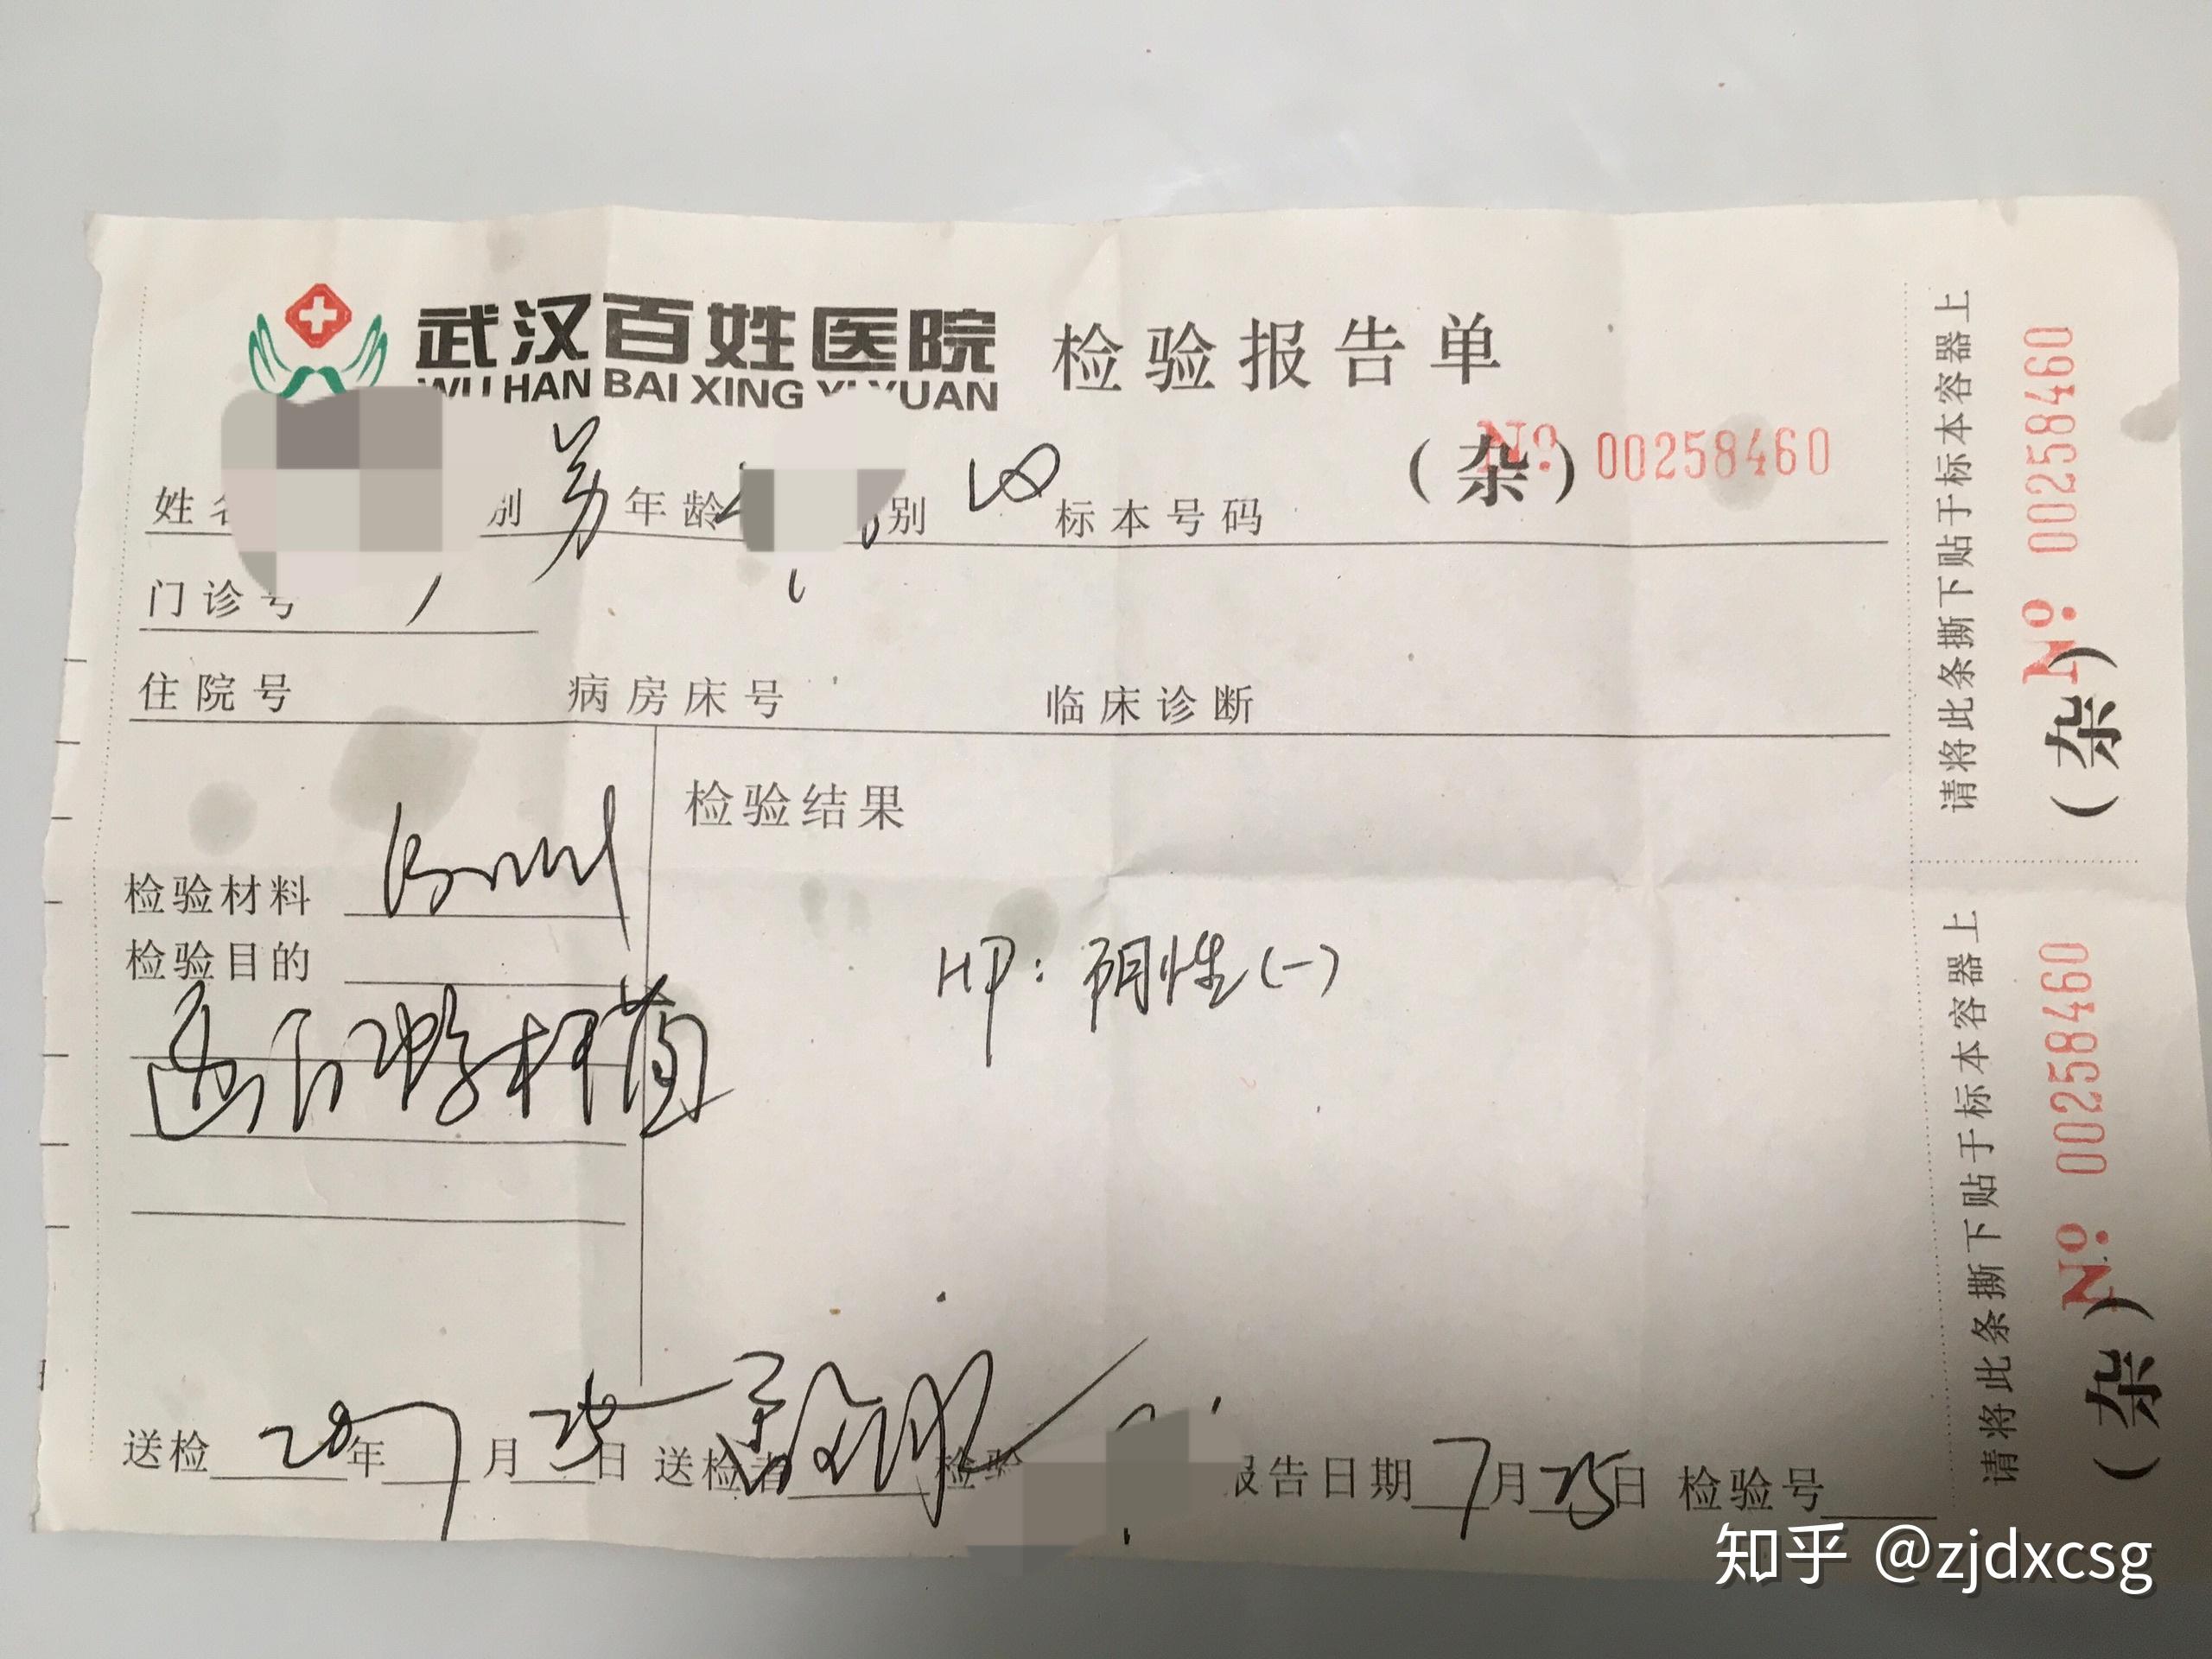 武汉百姓医院 检验报告单
WU HAN BAI XING YUAN
(杂) No. 00258460
姓名 别 男 年龄 别 标本号码
门诊号
住院号 病房床号 临床诊断
检验结果
检验材料
检验目的
HP: 阴性(-)
幽门螺杆菌
送检 20 年 7 月 25 日 送检者 检验 报告日期 7 月 25 日 检验号
请将此条撕下贴于标本容器上
(杂) No. 00258460
请将此条撕下贴于标本容器上
(杂) No. 00258460
知乎 @zjdxcsg